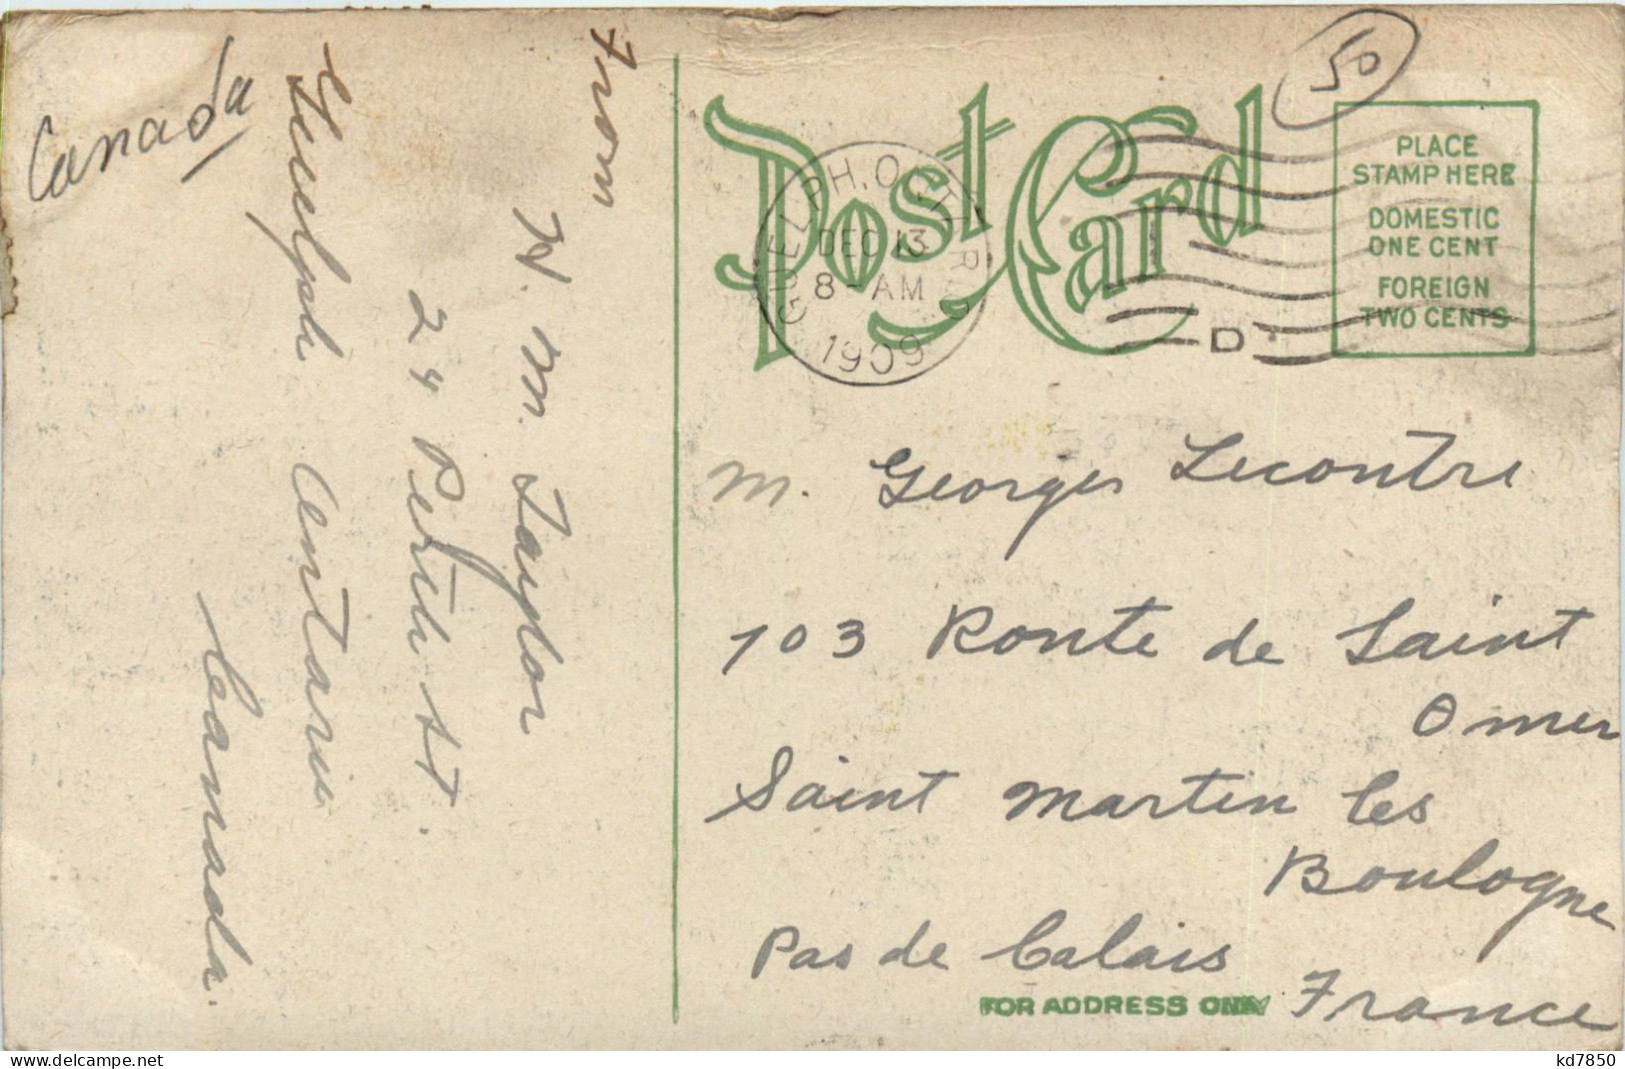 Canada
From
H. M. Taylor
24 Perth St.
Guelph Ontario
Canada.
50
Post Card
GUELPH, ONTARIO
DEC 13
8 - AM
1909
D
PLACE
STAMP HERE
DOMESTIC
ONE CENT
FOREIGN
TWO CENTS
M. Georges Lecontre
103 Route de Saint
Omer
Saint Martin les
Boulogne
Pas de Calais
France
FOR ADDRESS ONLY
kd7850